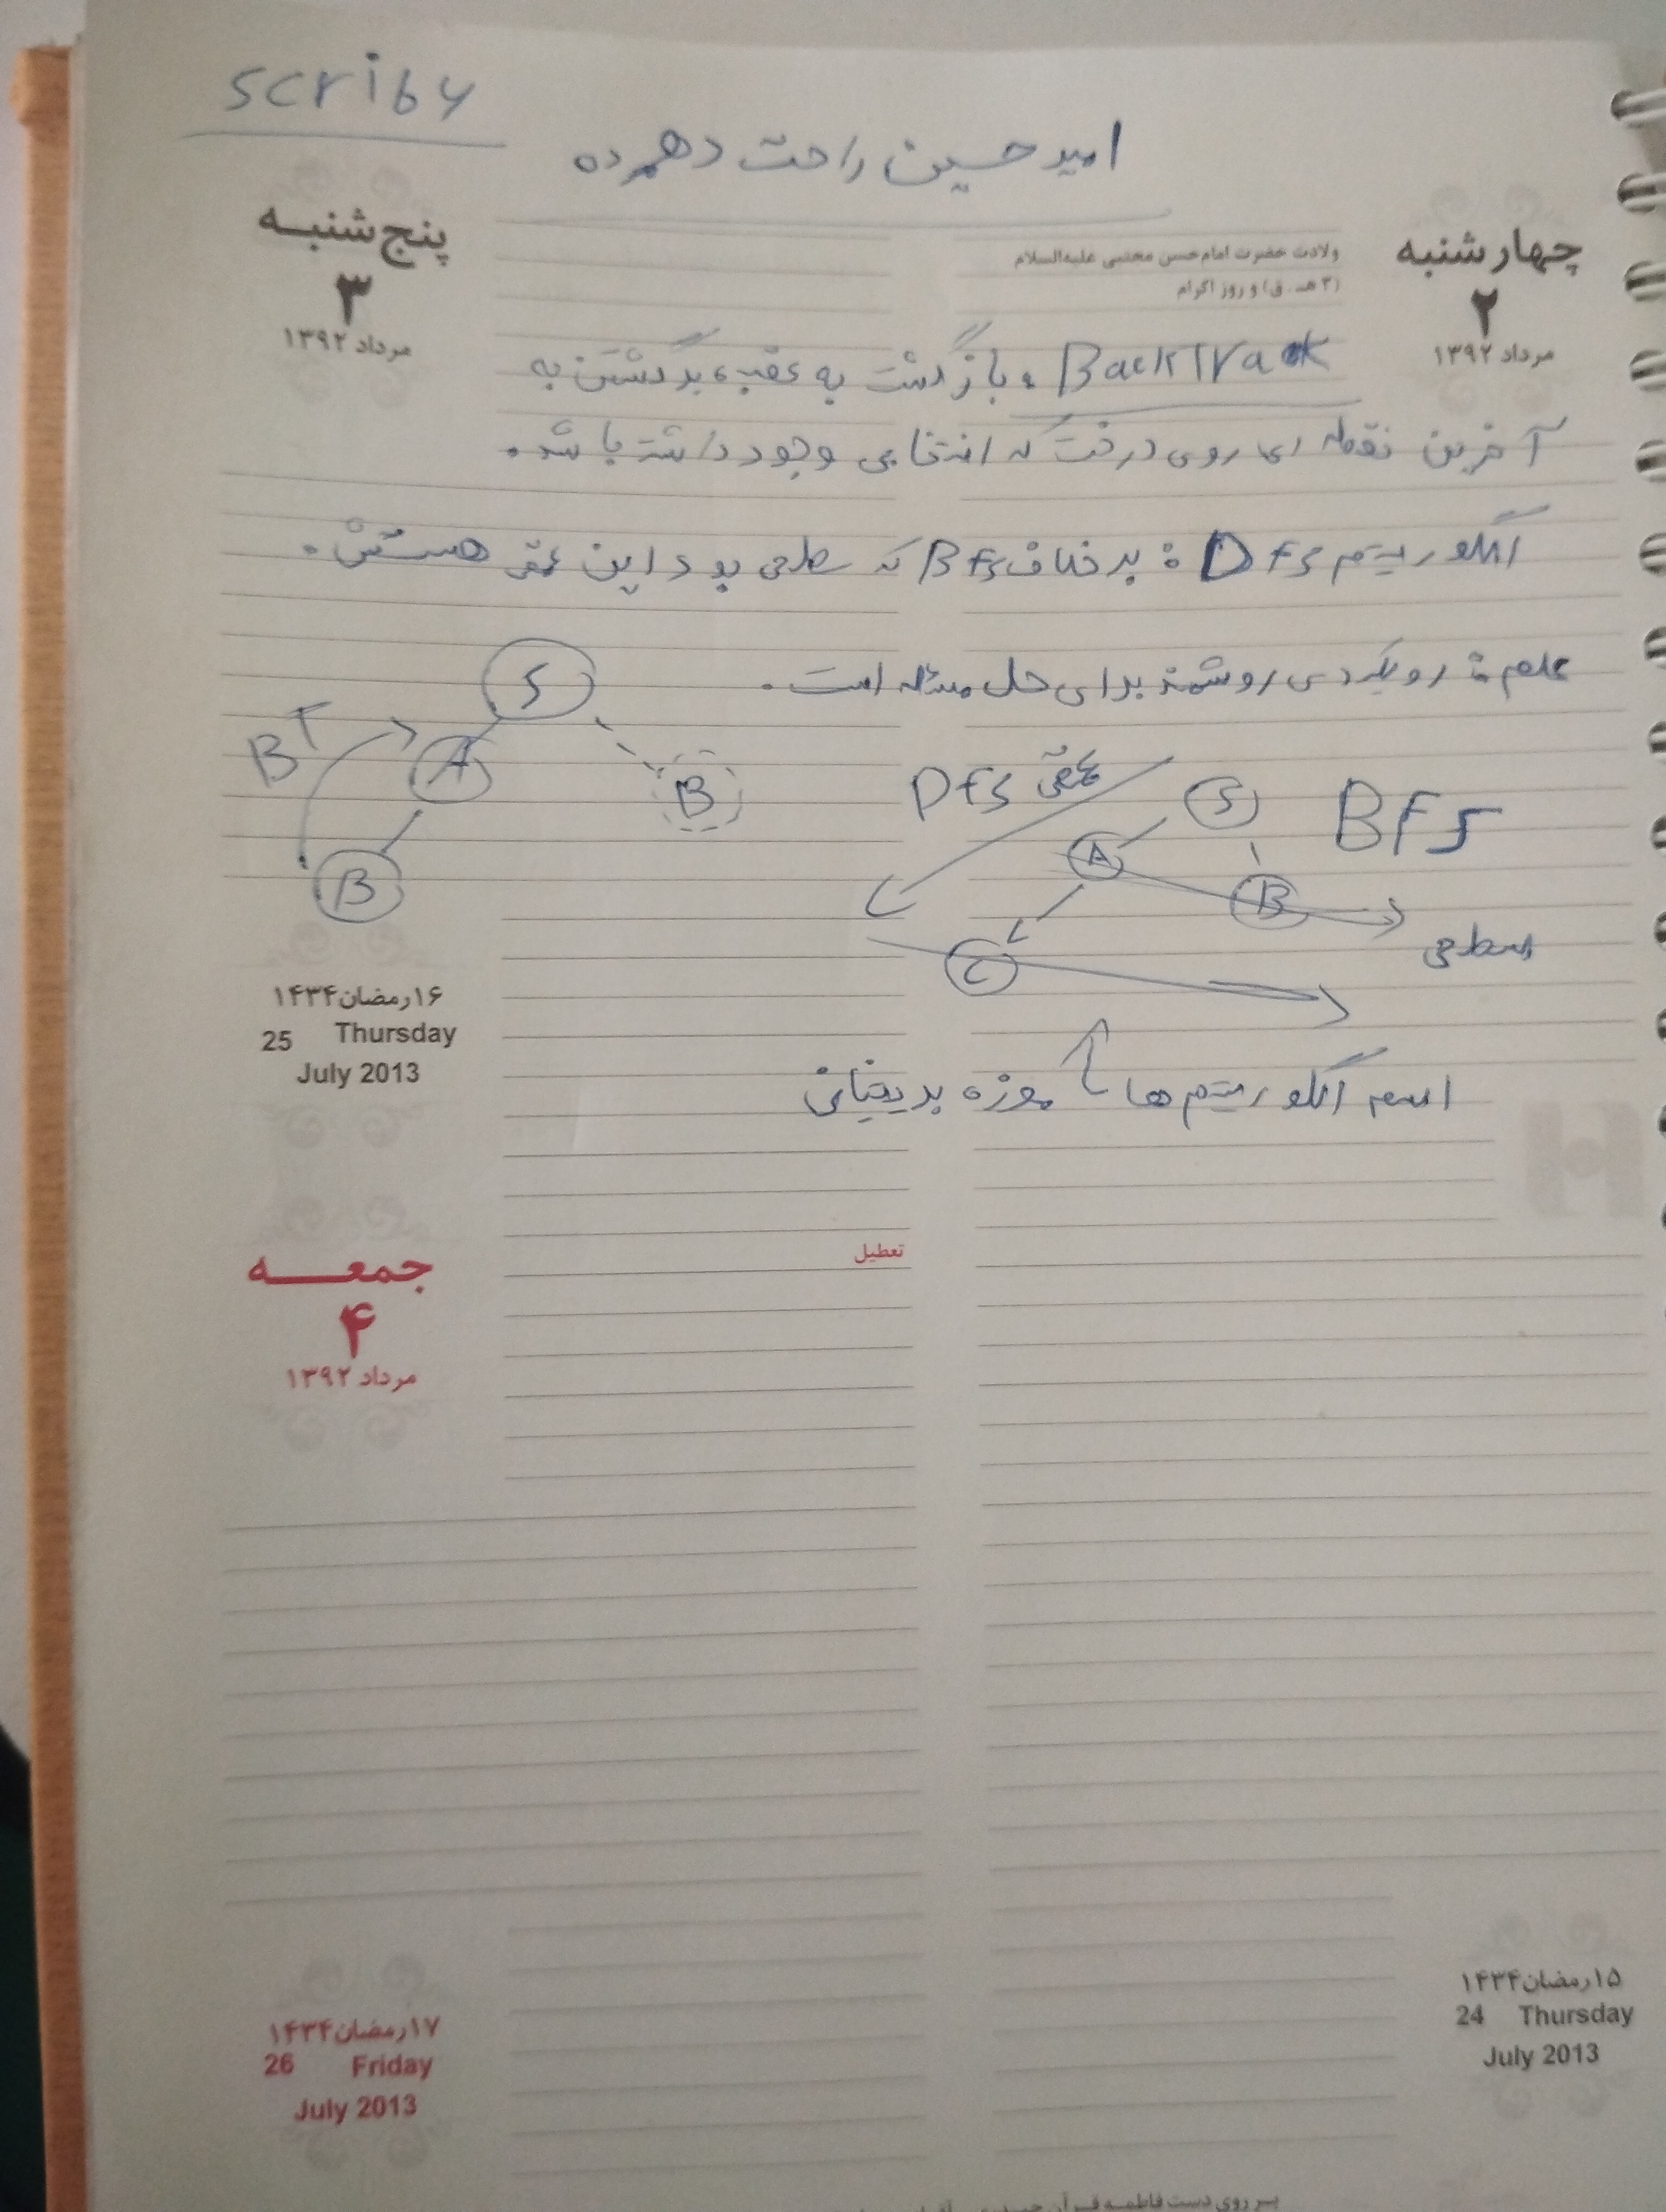 scriby
امیدحسین راحت دهمرده
پنج‌شنبه
۳
مرداد ۱۳۹۲
چهارشنبه
۲
مرداد ۱۳۹۲
ولادت حضرت امام حسن مجتبی علیه‌السلام
(۳ هـ . ق) و روز اکرام
BackTrack : بازگشت به عقب، برگشتن به
آخرین نقطه ای روی درخت که انتخابی وجود داشته باشد.
الگوریتم Dfs : برخلاف Bfs که سطحی بود این عمقی هستش.
علم : رویکردی روشمند برای حل مسئله است.
S
BT
A
B
B
Dfs عمقی
S
Bfs
A
B
C
سطحی
اسم الگوریتم ها موزه بریتانیا
۱۶ رمضان ۱۴۳۴
25 Thursday
July 2013
تعطیل
جمعه
۴
مرداد ۱۳۹۲
۱۵ رمضان ۱۴۳۴
24 Thursday
July 2013
۱۷ رمضان ۱۴۳۴
26 Friday
July 2013